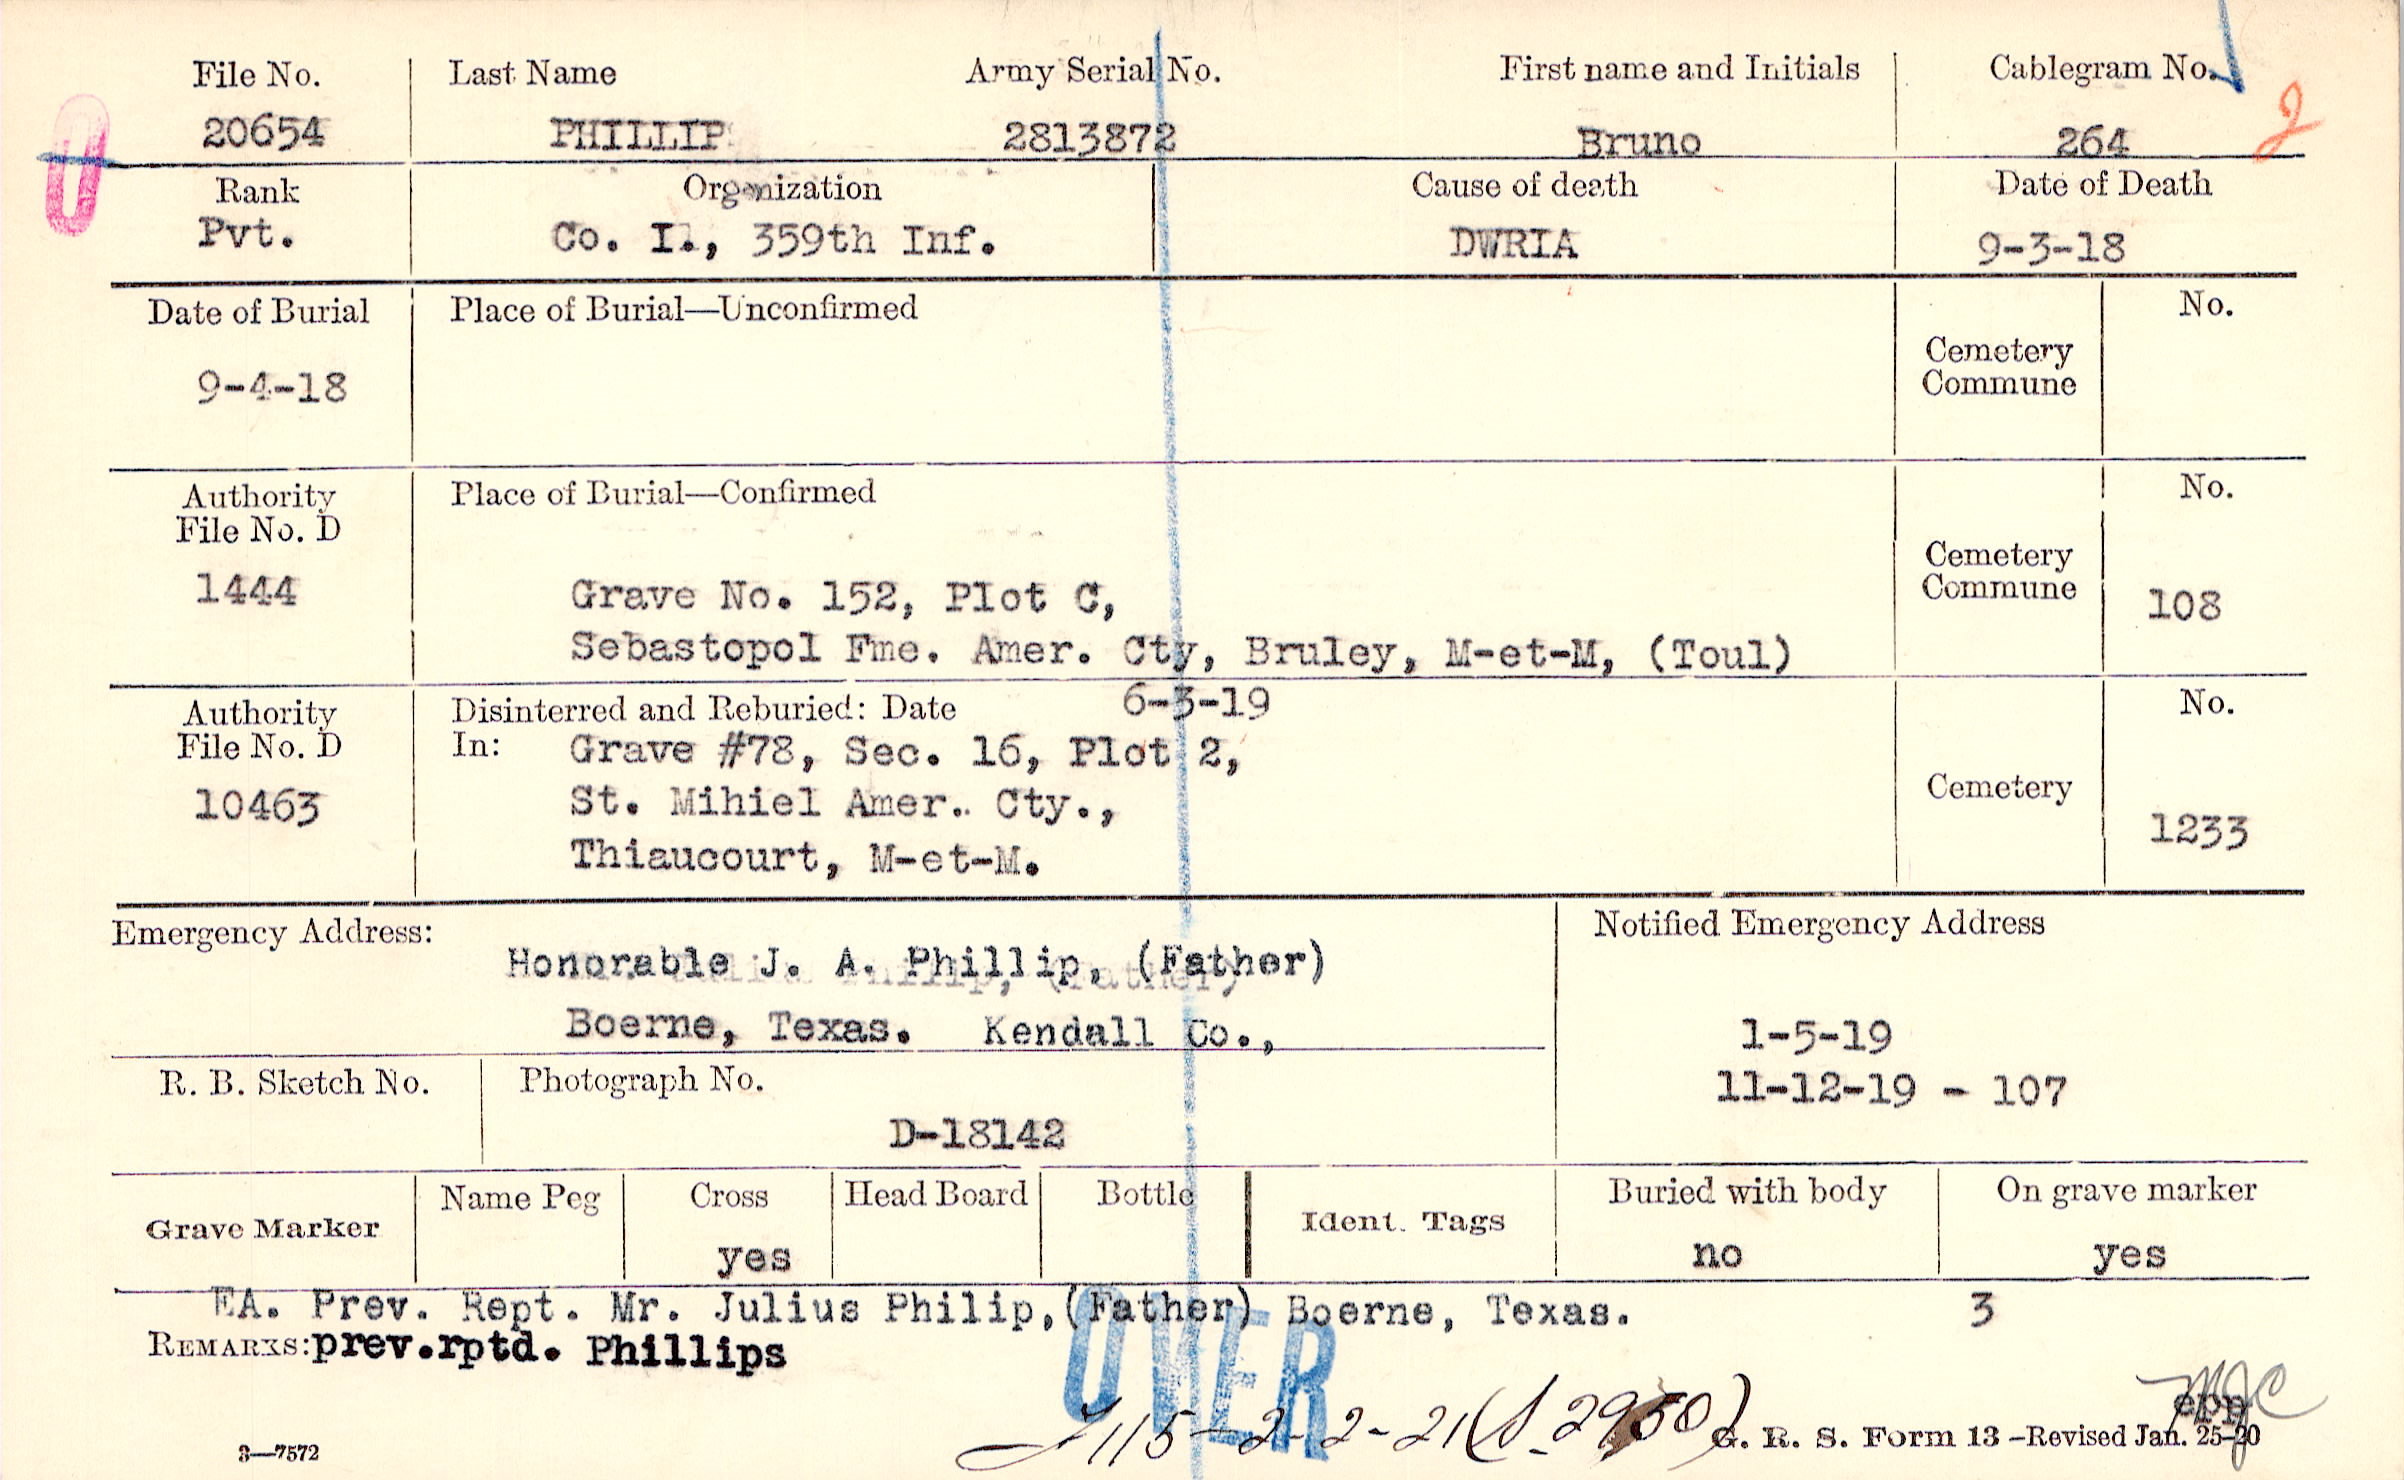 File No. Last Name Army Serial No. First name and Initials Cablegram No.
20654 PHILLIP 2813872 Bruno 264 2
Rank Organization Cause of death Date of Death
Pvt. Co. I., 359th Inf. DWRIA 9-3-18
Date of Burial Place of Burial—Unconfirmed No.
Cemetery
Commune
9-4-18
Authority Place of Burial—Confirmed No.
File No. D
Cemetery
Commune
1444 Grave No. 152, Plot C, 108
Sebastopol Fme. Amer. Cty, Bruley, M-et-M, (Toul)
Authority Disinterred and Reburied: Date 6-3-19 No.
File No. D In: Grave #78, Sec. 16, Plot 2,
10463 St. Mihiel Amer. Cty., Cemetery 1233
Thiaucourt, M-et-M.
Emergency Address: Notified Emergency Address
Honorable J. A. Phillip, (Father)
Boerne, Texas. Kendall Co., 1-5-19
R. B. Sketch No. Photograph No. 11-12-19 - 107
D-18142
Grave Marker Name Peg Cross Head Board Bottle Ident. Tags Buried with body On grave marker
yes no yes
EA. Prev. Rept. Mr. Julius Philip,(Father) Boerne, Texas. 3
REMARKS: prev.rptd. Phillips
OVER
MJC
epp
3—7572 G. R. S. Form 13 -Revised Jan. 25-20